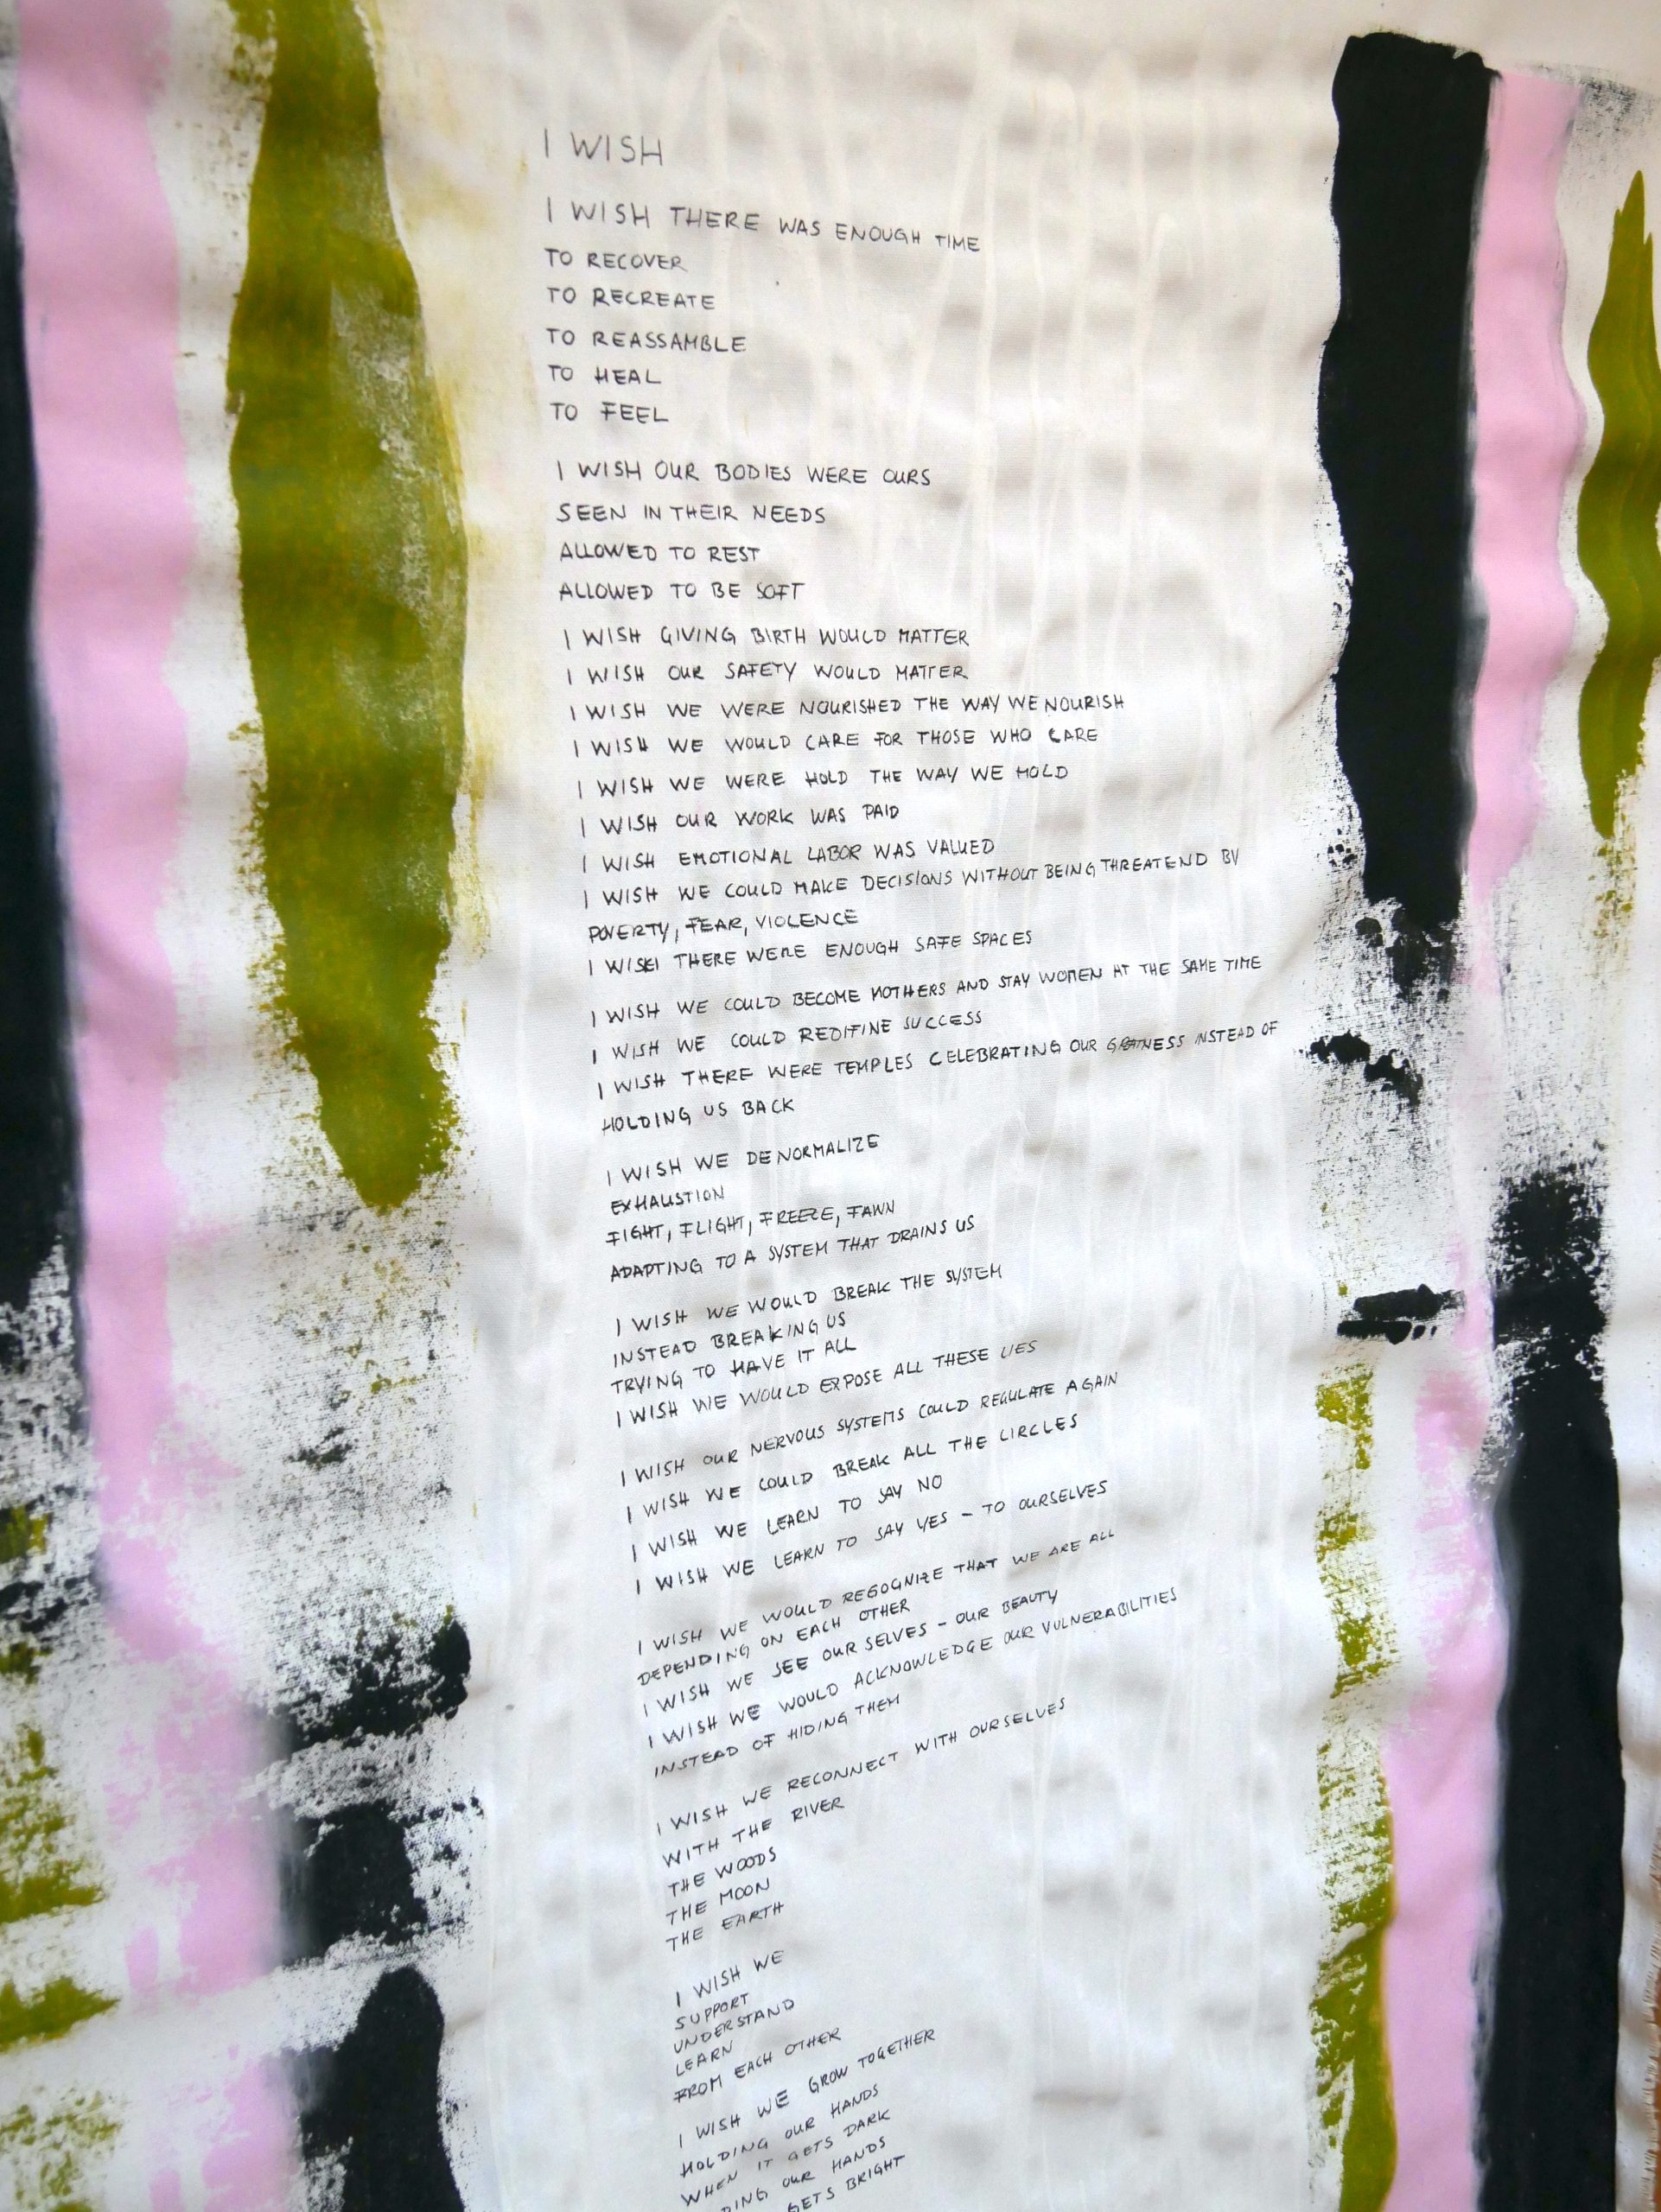 I WISH
I WISH THERE WAS ENOUGH TIME
TO RECOVER
TO RECREATE
TO REASSAMBLE
TO HEAL
TO FEEL
I WISH OUR BODIES WERE OURS
SEEN IN THEIR NEEDS
ALLOWED TO REST
ALLOWED TO BE SOFT
I WISH GIVING BIRTH WOULD MATTER
I WISH OUR SAFETY WOULD MATTER
I WISH WE WERE NOURISHED THE WAY WE NOURISH
I WISH WE WOULD CARE FOR THOSE WHO CARE
I WISH WE WERE HOLD THE WAY WE HOLD
I WISH OUR WORK WAS PAID
I WISH EMOTIONAL LABOR WAS VALUED
I WISH WE COULD MAKE DECISIONS WITHOUT BEING THREATEND BY
POVERTY, FEAR, VIOLENCE
I WISH THERE WERE ENOUGH SAFE SPACES
I WISH WE COULD BECOME MOTHERS AND STAY WOMEN AT THE SAME TIME
I WISH WE COULD REDIFINE SUCCESS
I WISH THERE WERE TEMPLES CELEBRATING OUR INSTEAD OF
HOLDING US BACK
I WISH WE DENORMALIZE
EXHAUSTION
FIGHT, FLIGHT, FREEZE, FAWN
ADAPTING TO A SYSTEM THAT DRAINS US
I WISH WE WOULD BREAK THE SYSTEM
INSTEAD BREAKING US
TRYING TO HAVE IT ALL
I WISH WE WOULD EXPOSE ALL THESE LIES
I WISH OUR NERVOUS SYSTEMS COULD REGULATE AGAIN
I WISH WE COULD BREAK ALL THE CIRCLES
I WISH WE LEARN TO SAY NO
I WISH WE LEARN TO SAY YES – TO OURSELVES
I WISH WE WOULD RECOGNIZE THAT WE ARE ALL
DEPENDING ON EACH OTHER
I WISH WE SEE OUR SELVES – OUR BEAUTY
I WISH WE WOULD ACKNOWLEDGE OUR VULNERABILITIES
INSTEAD OF HIDING THEM
I WISH WE RECONNECT WITH OURSELVES
WITH THE RIVER
THE WOODS
THE MOON
THE EARTH
I WISH WE
SUPPORT
UNDERSTAND
LEARN
FROM EACH OTHER
I WISH WE GROW TOGETHER
HOLDING OUR HANDS
WHEN IT GETS DARK
OUR HANDS
GETS BRIGHT